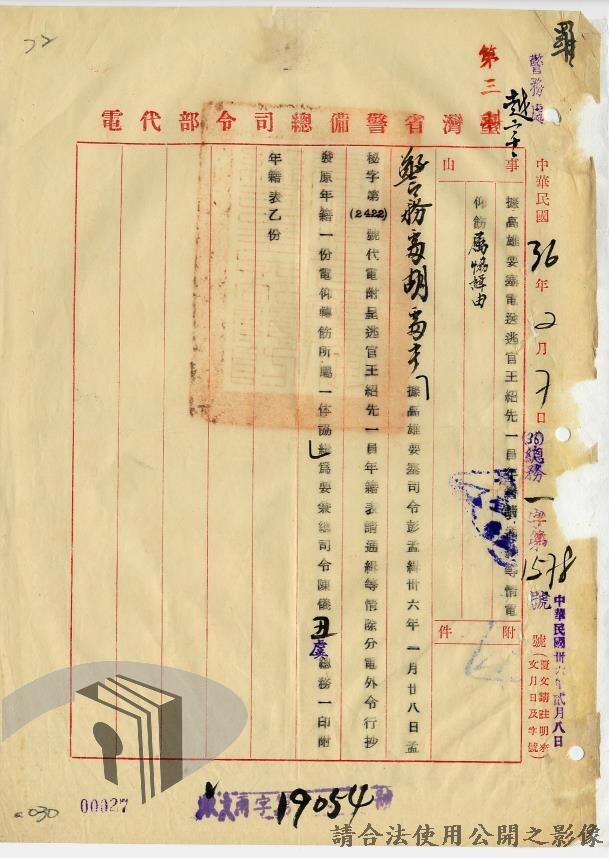 罪
警務處
第三
臺灣省警備總司令部代電
中華民國36年2月7日
(36)總務一字第1578號
號（覆文請註明來文月日及字號）
中華民國卅六年貳月八日
事由
據高雄要塞電送逃官王紹先一員年籍請通緝等情電
仰飭屬協緝由
附件
警務處胡處長
據高雄要塞司令彭孟緝卅六年一月廿八日孟
秘字第(2422)號代電附呈逃官王紹先一員年籍表請通緝等情除分電外令行抄
發原年籍一份電仰轉飭所屬一体協緝為要兼總司令陳儀丑虞總務一印附
年籍表乙份
00027
030
19054
請合法使用公開之影像